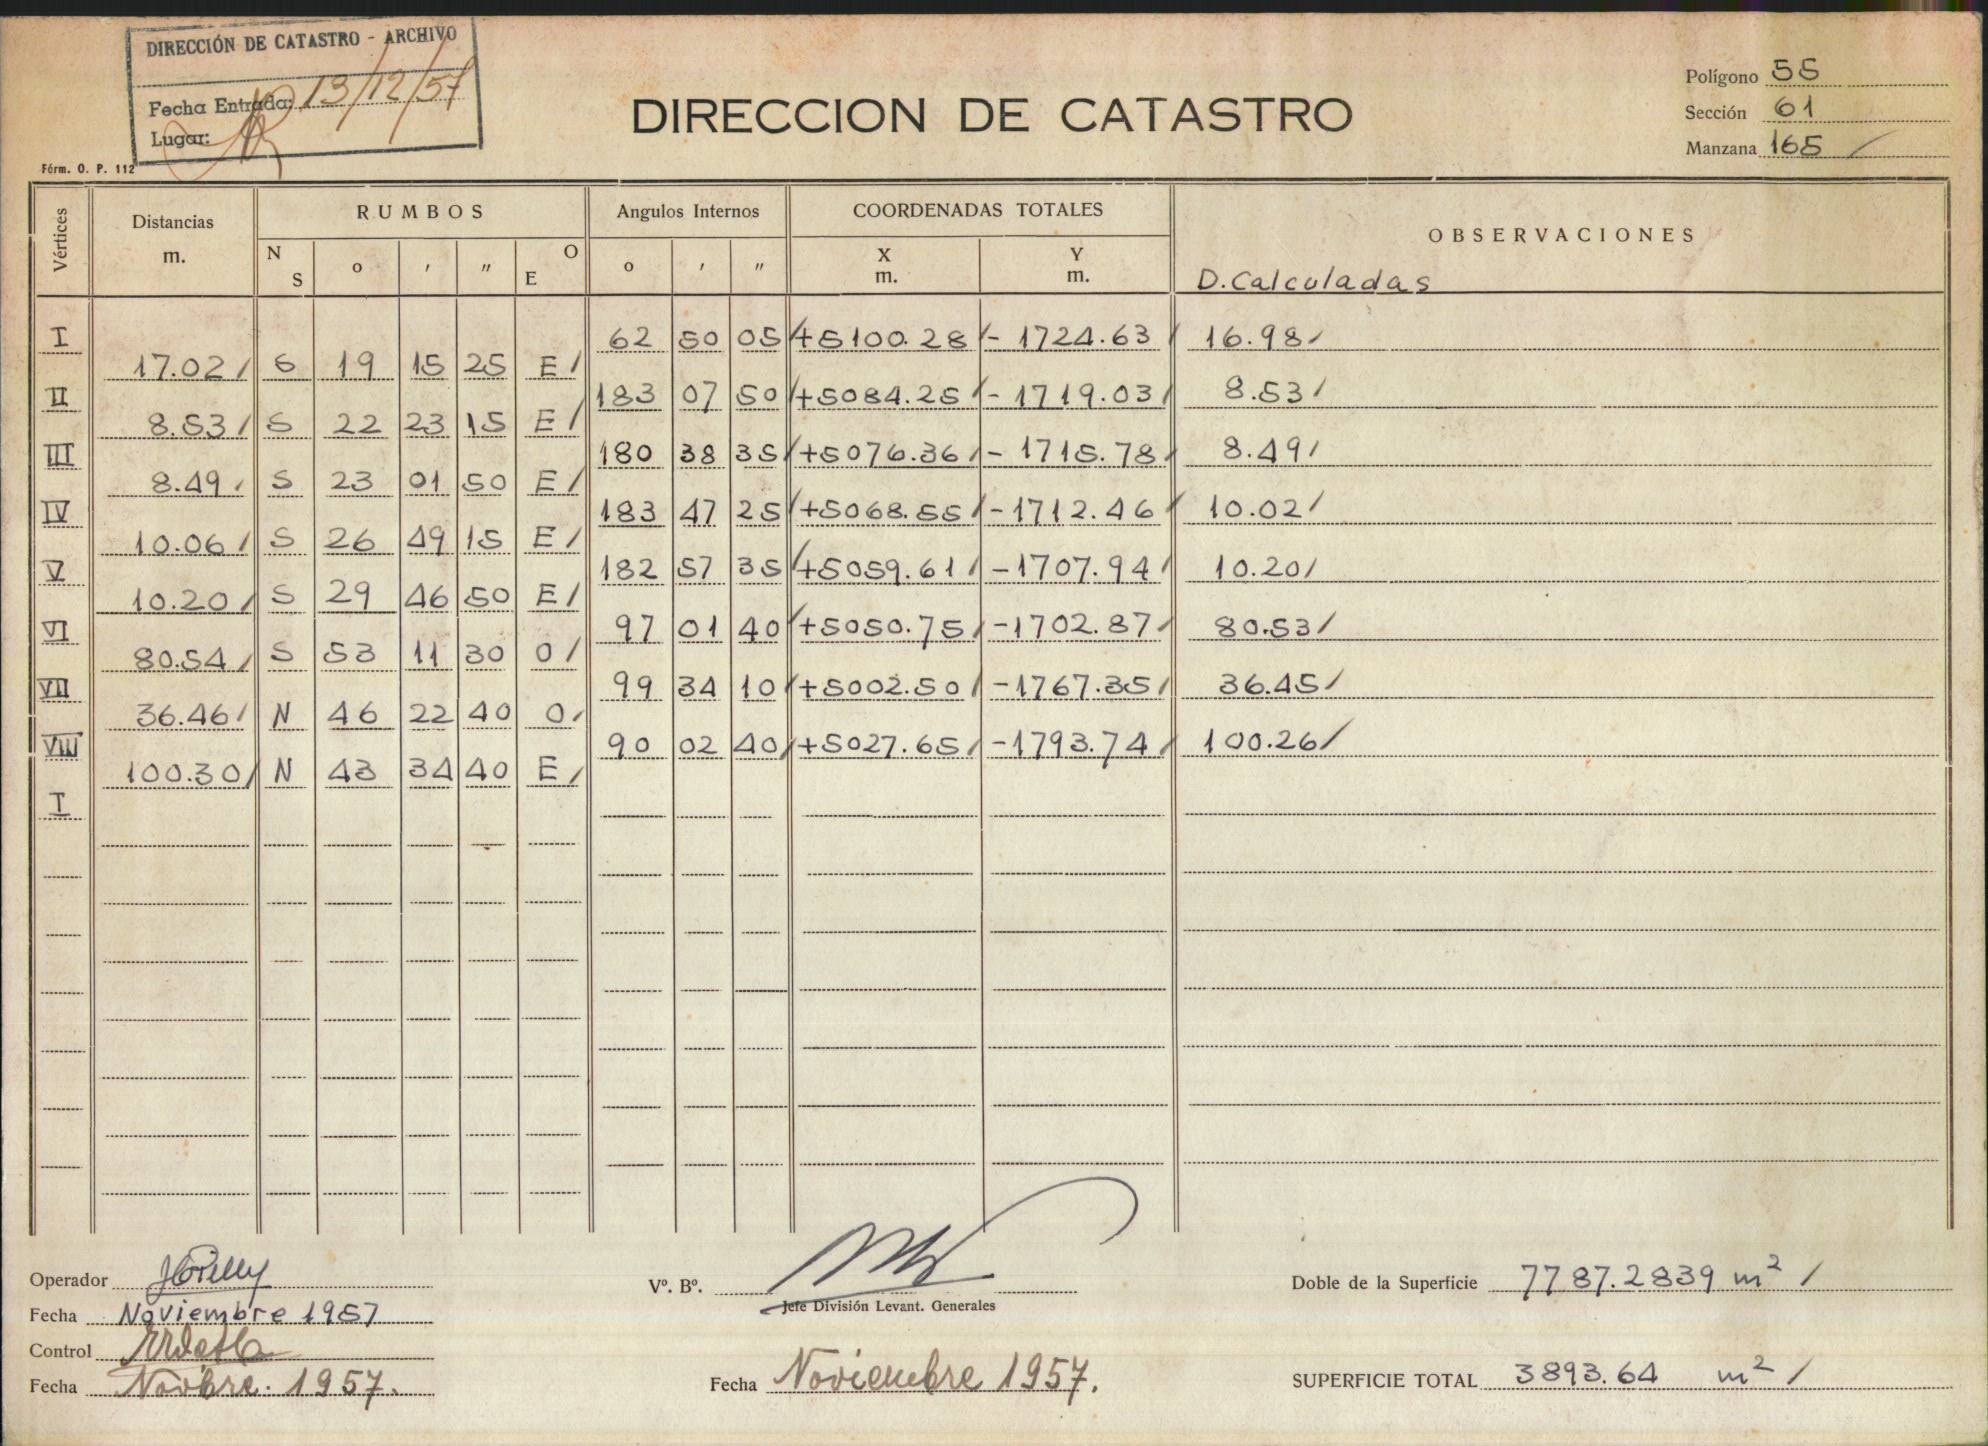 DIRECCIÓN DE CATASTRO - ARCHIVO
Fecha Entrada: 13/12/57
Lugar:
DIRECCION DE CATASTRO
Polígono 55
Sección 61
Manzana 165 /
Fórm. O. P. 112
Vértices Distancias m. RUMBOS Angulos Internos COORDENADAS TOTALES OBSERVACIONES
N S o ' " O E o ' " X m. Y m. D. Calculadas
I 62 50 05 / +5100.28 / - 1724.63 / 16.98 /
17.02 / S 19 15 25 E /
II 183 07 50 / +5084.25 / - 1719.03 / 8.53 /
8.53 / S 22 23 15 E /
III 180 38 35 / +5076.36 / - 1715.78 / 8.49 /
8.49 / S 23 01 50 E /
IV 183 47 25 / +5068.55 / - 1712.46 / 10.02 /
10.06 / S 26 49 15 E /
V 182 57 35 / +5059.61 / - 1707.94 / 10.20 /
10.20 / S 29 46 50 E /
VI 97 01 40 / +5050.75 / - 1702.87 / 80.53 /
80.54 / S 53 11 30 O /
VII 99 34 10 / +5002.50 / - 1767.35 / 36.45 /
36.46 / N 46 22 40 O /
VIII 90 02 40 / +5027.65 / - 1793.74 / 100.26 /
100.30 / N 43 34 40 E /
I
Operador
Fecha Noviembre 1957
Control
Fecha Novbre. 1957.
Vº. Bº.
Jefe División Levant. Generales
Fecha Noviembre 1957.
Doble de la Superficie 7787.2839 m² /
SUPERFICIE TOTAL 3893.64 m² /